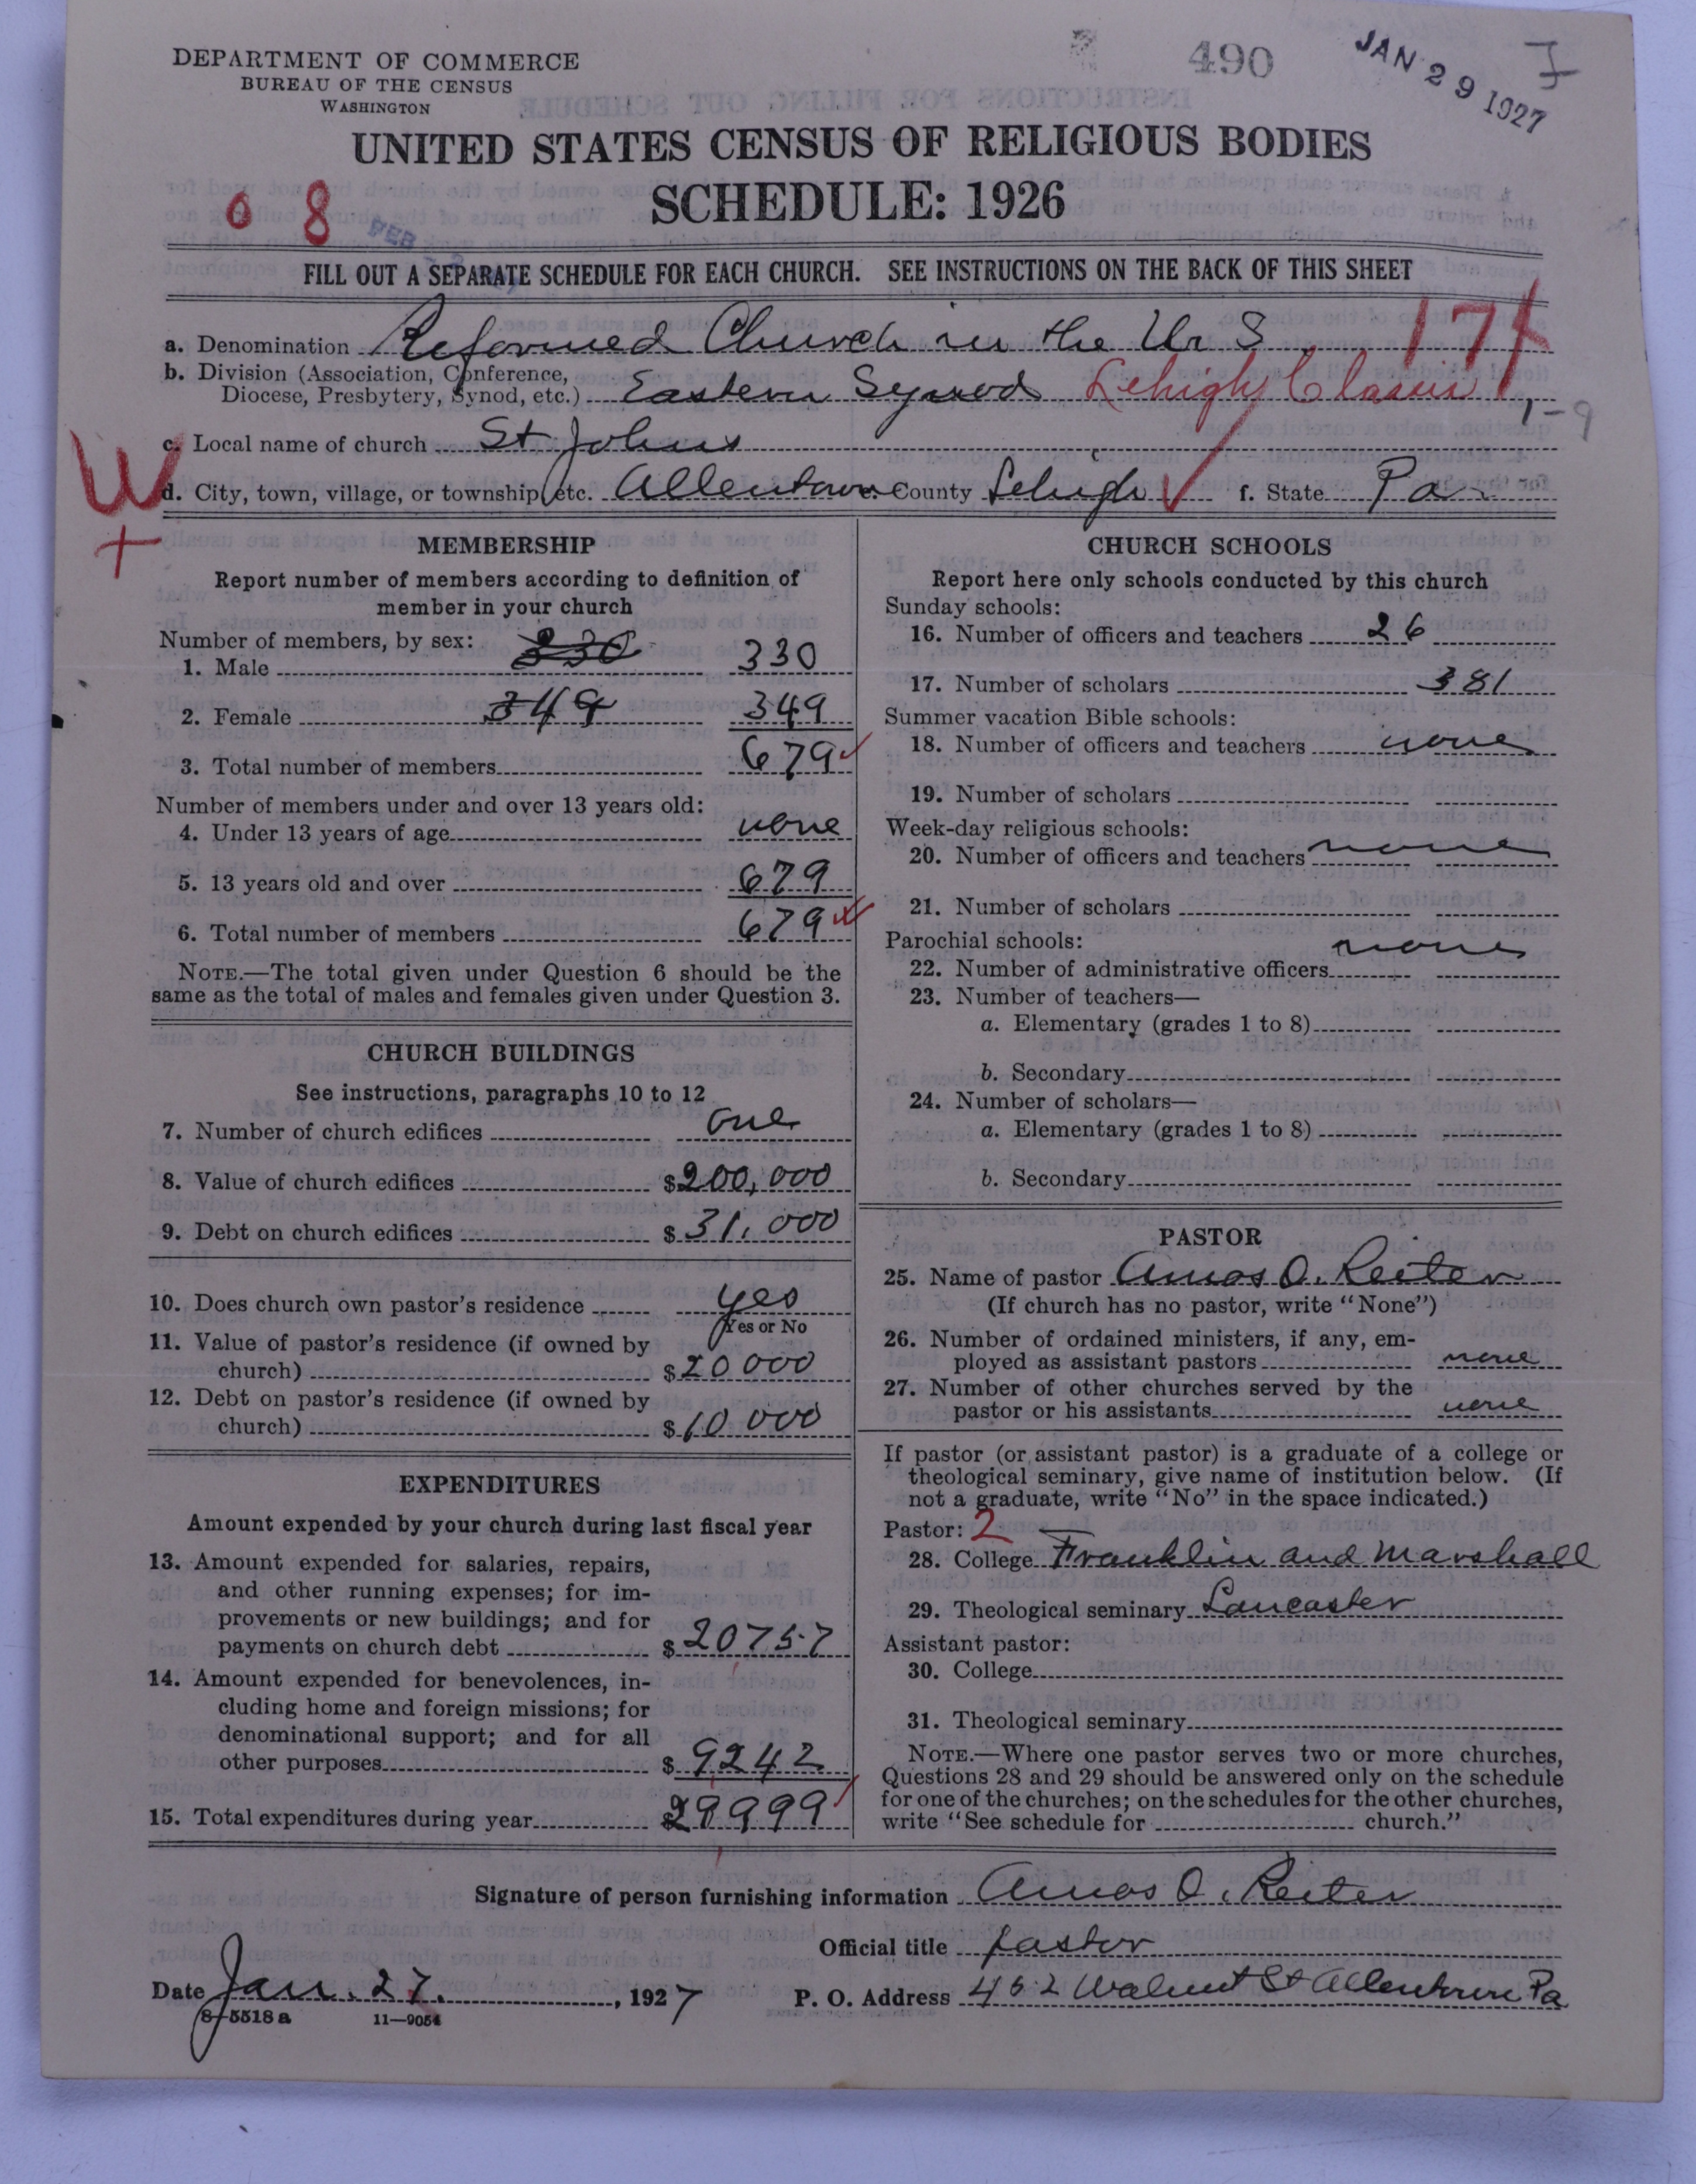 DEPARTMENT OF COMMERCE
BUREAU OF THE CENSUS
WASHINGTON
490
JAN 29 1927
UNITED STATES CENSUS OF RELIGIOUS BODIES
SCHEDULE: 1926
0 8
FEB
FILL OUT A SEPARATE SCHEDULE FOR EACH CHURCH. SEE INSTRUCTIONS ON THE BACK OF THIS SHEET
a. Denomination Reformed Church in the U. S.
b. Division (Association, Conference,
Diocese, Presbytery, Synod, etc.) Eastern Synod Lehigh Classis
c. Local name of church St Johns
W
d. City, town, village, or township, etc. Allentown County Lehigh f. State Pa
MEMBERSHIP
Report number of members according to definition of
member in your church
Number of members, by sex:
1. Male 330 330
2. Female 349 349
3. Total number of members 679
Number of members under and over 13 years old:
4. Under 13 years of age none
5. 13 years old and over 679
6. Total number of members 679
NOTE.—The total given under Question 6 should be the
same as the total of males and females given under Question 3.
CHURCH BUILDINGS
See instructions, paragraphs 10 to 12
7. Number of church edifices one
8. Value of church edifices $200,000
9. Debt on church edifices $31,000
10. Does church own pastor's residence yes
Yes or No
11. Value of pastor's residence (if owned by
church) $20000
12. Debt on pastor's residence (if owned by
church) $10000
EXPENDITURES
Amount expended by your church during last fiscal year
13. Amount expended for salaries, repairs,
and other running expenses; for im-
provements or new buildings; and for
payments on church debt $20757
14. Amount expended for benevolences, in-
cluding home and foreign missions; for
denominational support; and for all
other purposes $9242
15. Total expenditures during year $29999
CHURCH SCHOOLS
Report here only schools conducted by this church
Sunday schools:
16. Number of officers and teachers 26
17. Number of scholars 381
Summer vacation Bible schools:
18. Number of officers and teachers none
19. Number of scholars
Week-day religious schools:
20. Number of officers and teachers none
21. Number of scholars
Parochial schools:
22. Number of administrative officers none
23. Number of teachers—
a. Elementary (grades 1 to 8)
b. Secondary
24. Number of scholars—
a. Elementary (grades 1 to 8)
b. Secondary
PASTOR
25. Name of pastor Amos O. Reiter
(If church has no pastor, write "None")
26. Number of ordained ministers, if any, em-
ployed as assistant pastors none
27. Number of other churches served by the
pastor or his assistants none
If pastor (or assistant pastor) is a graduate of a college or
theological seminary, give name of institution below. (If
not a graduate, write "No" in the space indicated.)
Pastor: 2
28. College Franklin and Marshall
29. Theological seminary Lancaster
Assistant pastor:
30. College
31. Theological seminary
NOTE.—Where one pastor serves two or more churches,
Questions 28 and 29 should be answered only on the schedule
for one of the churches; on the schedules for the other churches,
write "See schedule for church."
Signature of person furnishing information Amos O. Reiter
Official title pastor
Date Jan. 27, 1927 P. O. Address 452 Walnut St Allentown Pa
8-5518a 11—9051